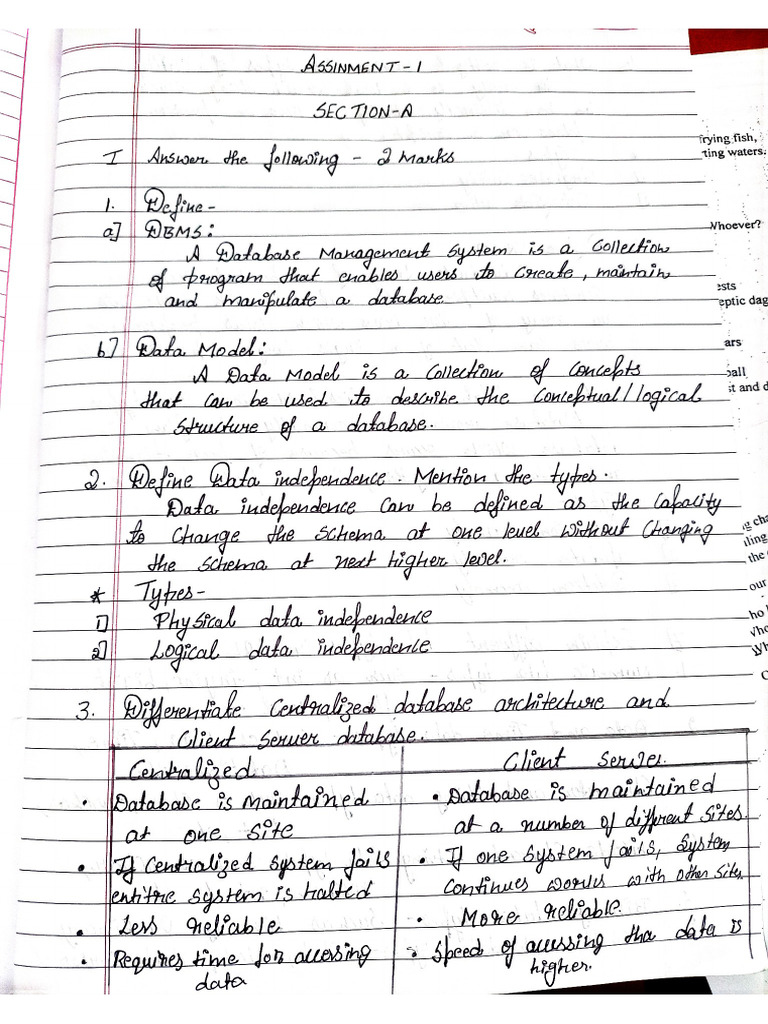 ASSINMENT-1
SECTION-A
I Answer the following - 2 Marks
1. Define-
a] DBMS:
A Database Management System is a Collection
of program that enables users to create, maintain
and manipulate a database
b] Data Model:
A Data Model is a Collection of Concepts
that can be used to describe the Conceptual/logical
structure of a database.
2. Define Data independence. Mention the types.
Data independence can be defined as the Capacity
to Change the schema at one level without Changing
the schema at next higher level.
* Types-
1] Physical data independence
2] Logical data independence
3. Differentiate Centralized database architecture and
Client Server database.
Centralized
• Database is maintained
at one site
• If Centralized system fails
entitre system is halted
• Less reliable
• Requires time for accessing
data
Client Server.
• Database is maintained
at a number of different sites.
• If one system fails, System
continues works with other site.
• More reliable.
• Speed of accessing tha data is
higher.
frying fish,
ting waters.
Whoever?
ests
eptic dag
ars
ball
it and d
g cha
lling
the
our
ho
Who
Wh